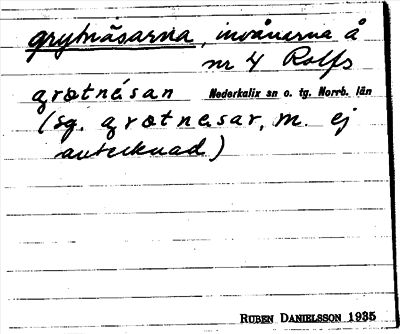 grytnäsarna, invånarna å
nr 4 Rolfs
grøtnésan Nederkalix sn o. tg. Norrb. län
(sg. grøtnesar, m. ej
antecknad)
RUBEN DANIELSSON 1935